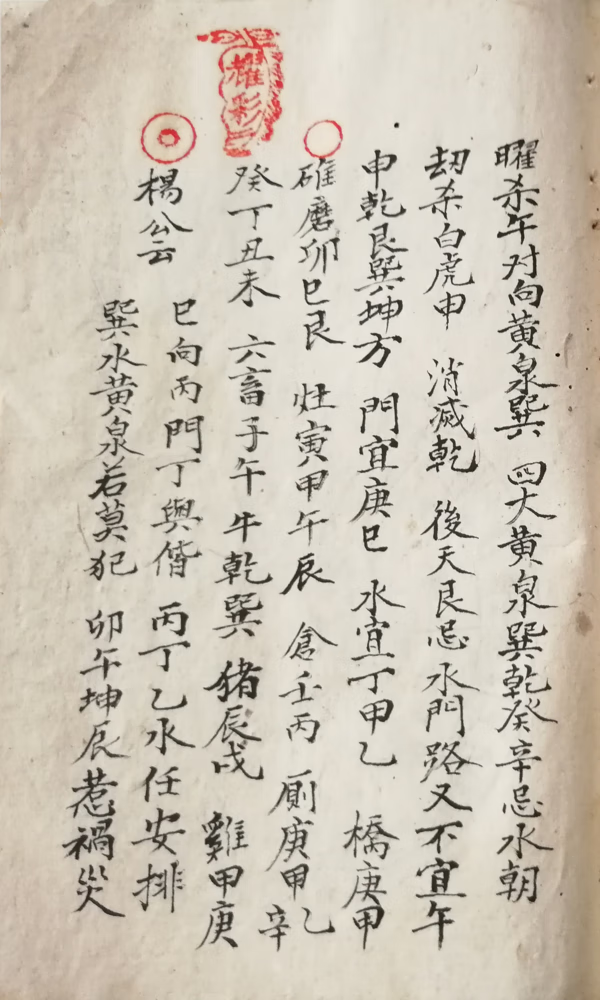 曜杀午对向黄泉巽 四大黄泉巽乾癸辛忌水朝
劫杀白虎申 消滅乾 後天艮忌水門路又不宜午
申乾艮巽坤方 門宜庚巳 水宜丁甲乙 橋庚甲
碓磨卯巳艮 灶寅甲午辰 倉壬丙 厠庚甲乙辛
癸丁丑未 六畜子午牛乾巽 猪辰戌 雞甲庚
楊公云
巳向丙門丁與偕 丙丁乙水任安排
巽水黄泉若莫犯 卯午坤辰惹禍災
耀彩